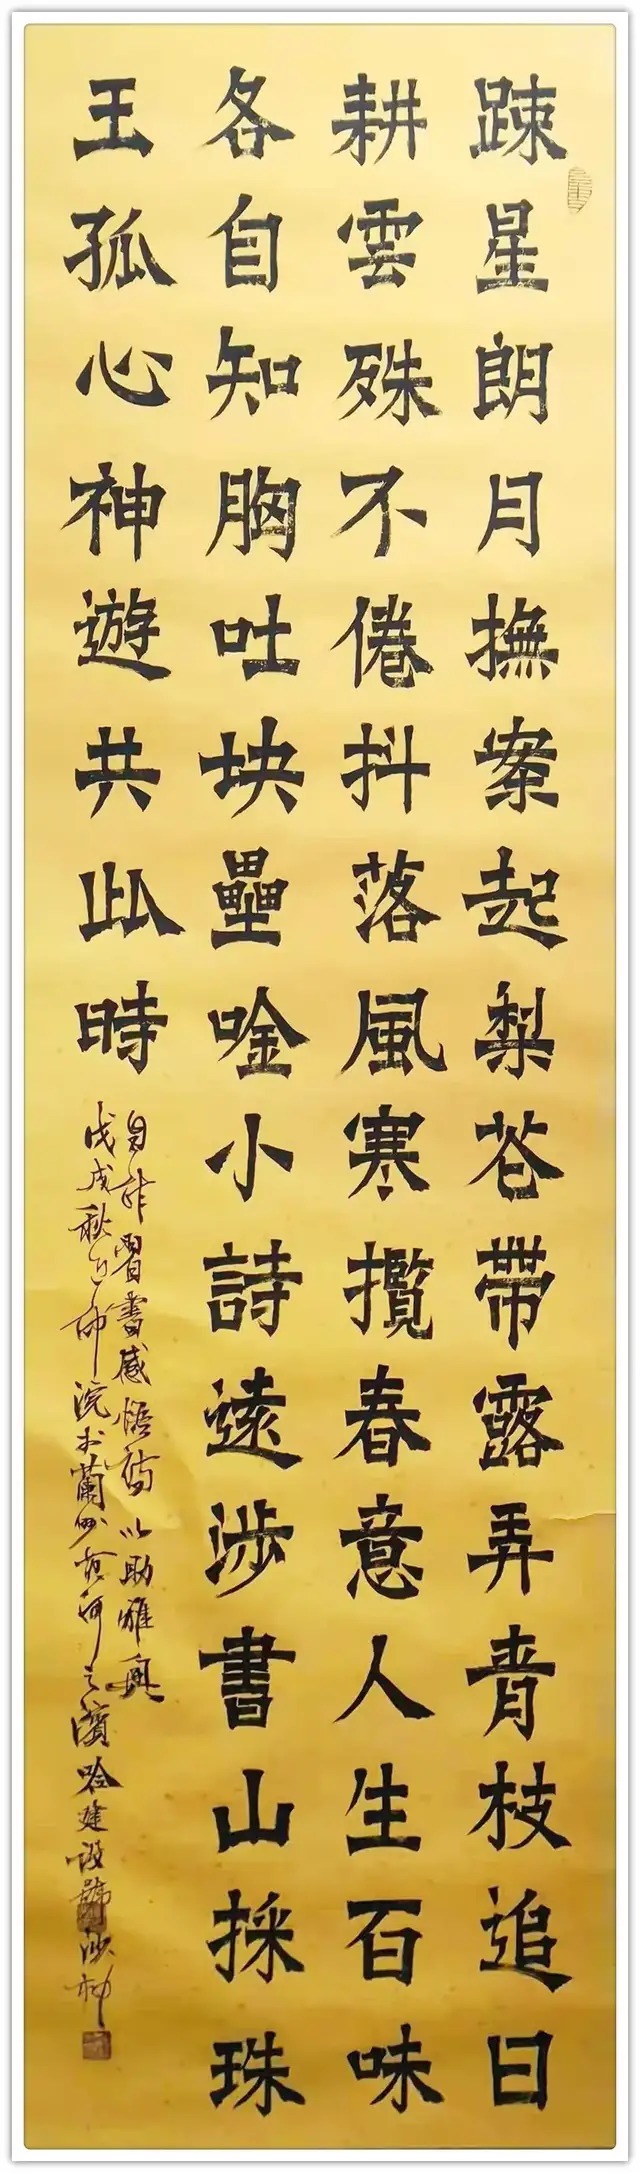 踈星朗月撫案起梨花帶露弄青枝追日
耕雲殊不倦抖落風寒攬春意人生百味
各自知胸吐块壘唫小詩遠涉書山採珠
王孤心神遊共此時
自作習書感悟詩以助雅興
戊戌秋之仲浣於蘭州黄河之濱哈建設號沙柳